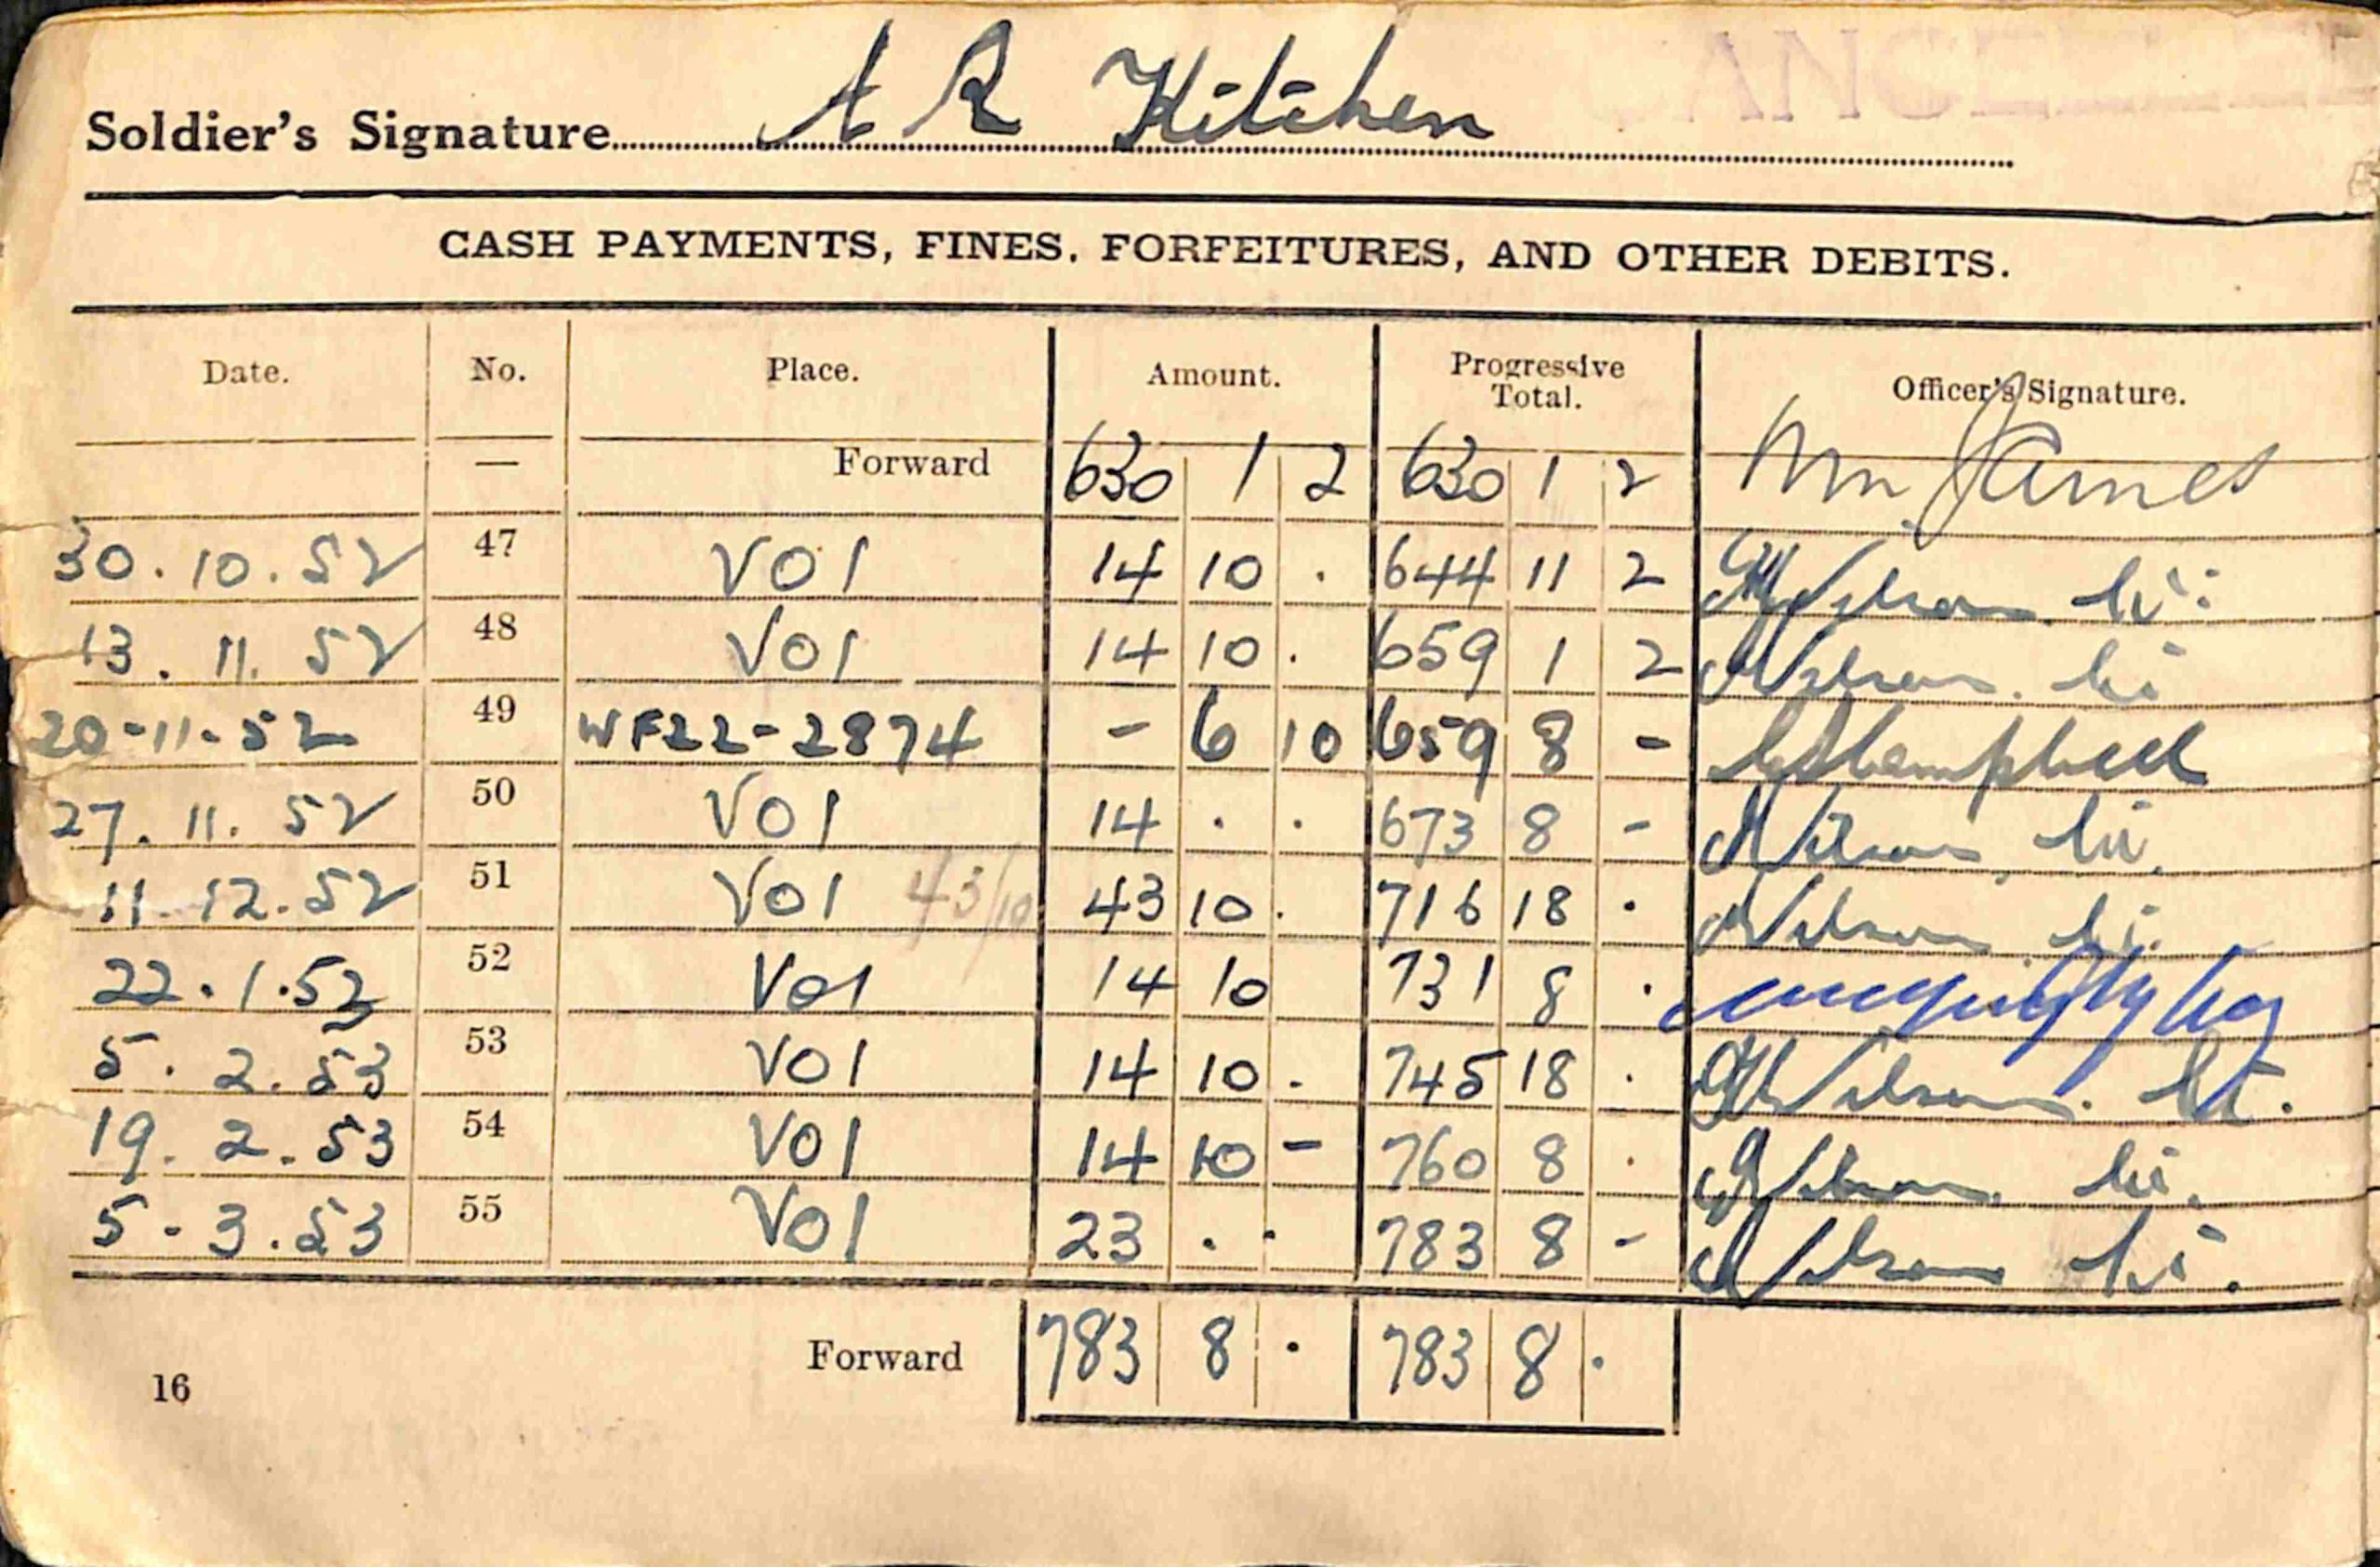 Soldier's Signature A R Kitchen
CASH PAYMENTS, FINES, FORFEITURES, AND OTHER DEBITS.
Date. No. Place. Amount. Progressive Total. Officer's Signature.
— Forward 630 1 2 630 1 2 Wm. James
30.10.52 47 VO1 14 10 . 644 11 2 Wilson Lt.
13.11.52 48 VO1 14 10 . 659 1 2 Wilson. Lt
20-11-52 49 WF22-2874 - 6 10 659 8 - Campbell
27.11.52 50 VO1 14 . . 673 8 - Wilson Lt.
11.12.52 51 VO1 43/10 43 10 . 716 18 . Wilson Lt.
22.1.53 52 VO1 14 10 731 8 .
5.2.53 53 VO1 14 10 . 745 18 . Wilson. Lt.
19.2.53 54 VO1 14 10 - 760 8 . Wilson. Lt.
5-3.53 55 VO1 23 . . 783 8 - Wilson Lt.
Forward 783 8 . 783 8 .
16